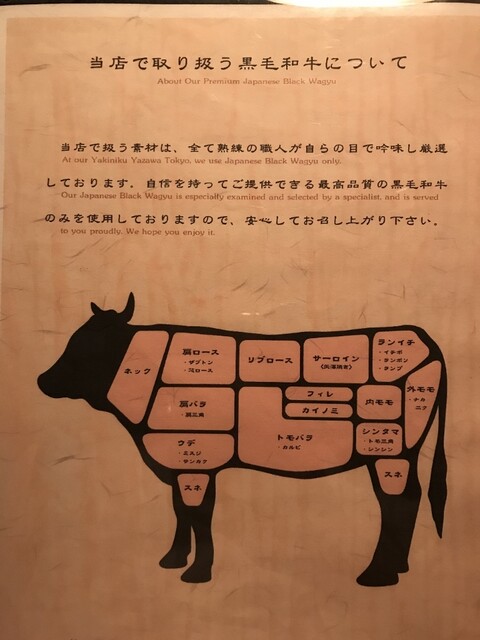 当店で取り扱う黒毛和牛について
About Our Premium Japanese Black Wagyu
当店で扱う素材は、全て熟練の職人が自らの目で吟味し厳選
At our Yakiniku Yazawa Tokyo, we use Japanese Black Wagyu only.
しております。自信を持ってご提供できる最高品質の黒毛和牛
Our Japanese Black Wagyu is especially examined and selected by a specialist, and is served
のみを使用しておりますので、安心してお召し上がり下さい。
to you proudly. We hope you enjoy it.
ネック
肩ロース
・ザブトン
リブロース
サーロイン
ランイチ
・イチボ
・ランボン
・ネンプ
肩バラ
・肩三角
フィレ
カイノミ
内モモ
外モモ
ウデ
・ミスジ
・サンカク
トモバラ
・カルビ
シンタマ
・トモ三角
・シンシン
スネ
スネ